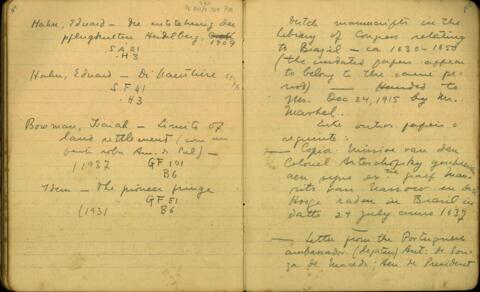 6
Hahn, Eduard — Die entstehung der
pflugkultur Heidelberg,
1909
SA 21
.H3
Hahn, Eduard — Die Haustiere
SF 41
.H3
Bowman, Isaiah — Limits of
land settlement (
)
1937 GF 101
B6
Idem — The pioneer fringe
GF 51
(1931 B6
Dutch manuscripts in the
Library of Congress relating
to Brazil — ca 1630-1650
(the undated papers appear
to belong to the same pe-
riod) — Handed to
Ms. Dec 24, 1915 by Mr.
.
Cite outros papeis o
seguinte:
— Copia: Missive van den
Colonel Artichofsky
aen syne
van Nassow
Hooge raden in Brasil in
datto 24 July anno 1637
— Letter from the Portuguese
ambassador (legaten) Ant: de Sou-
za de Macedo; Aen de President